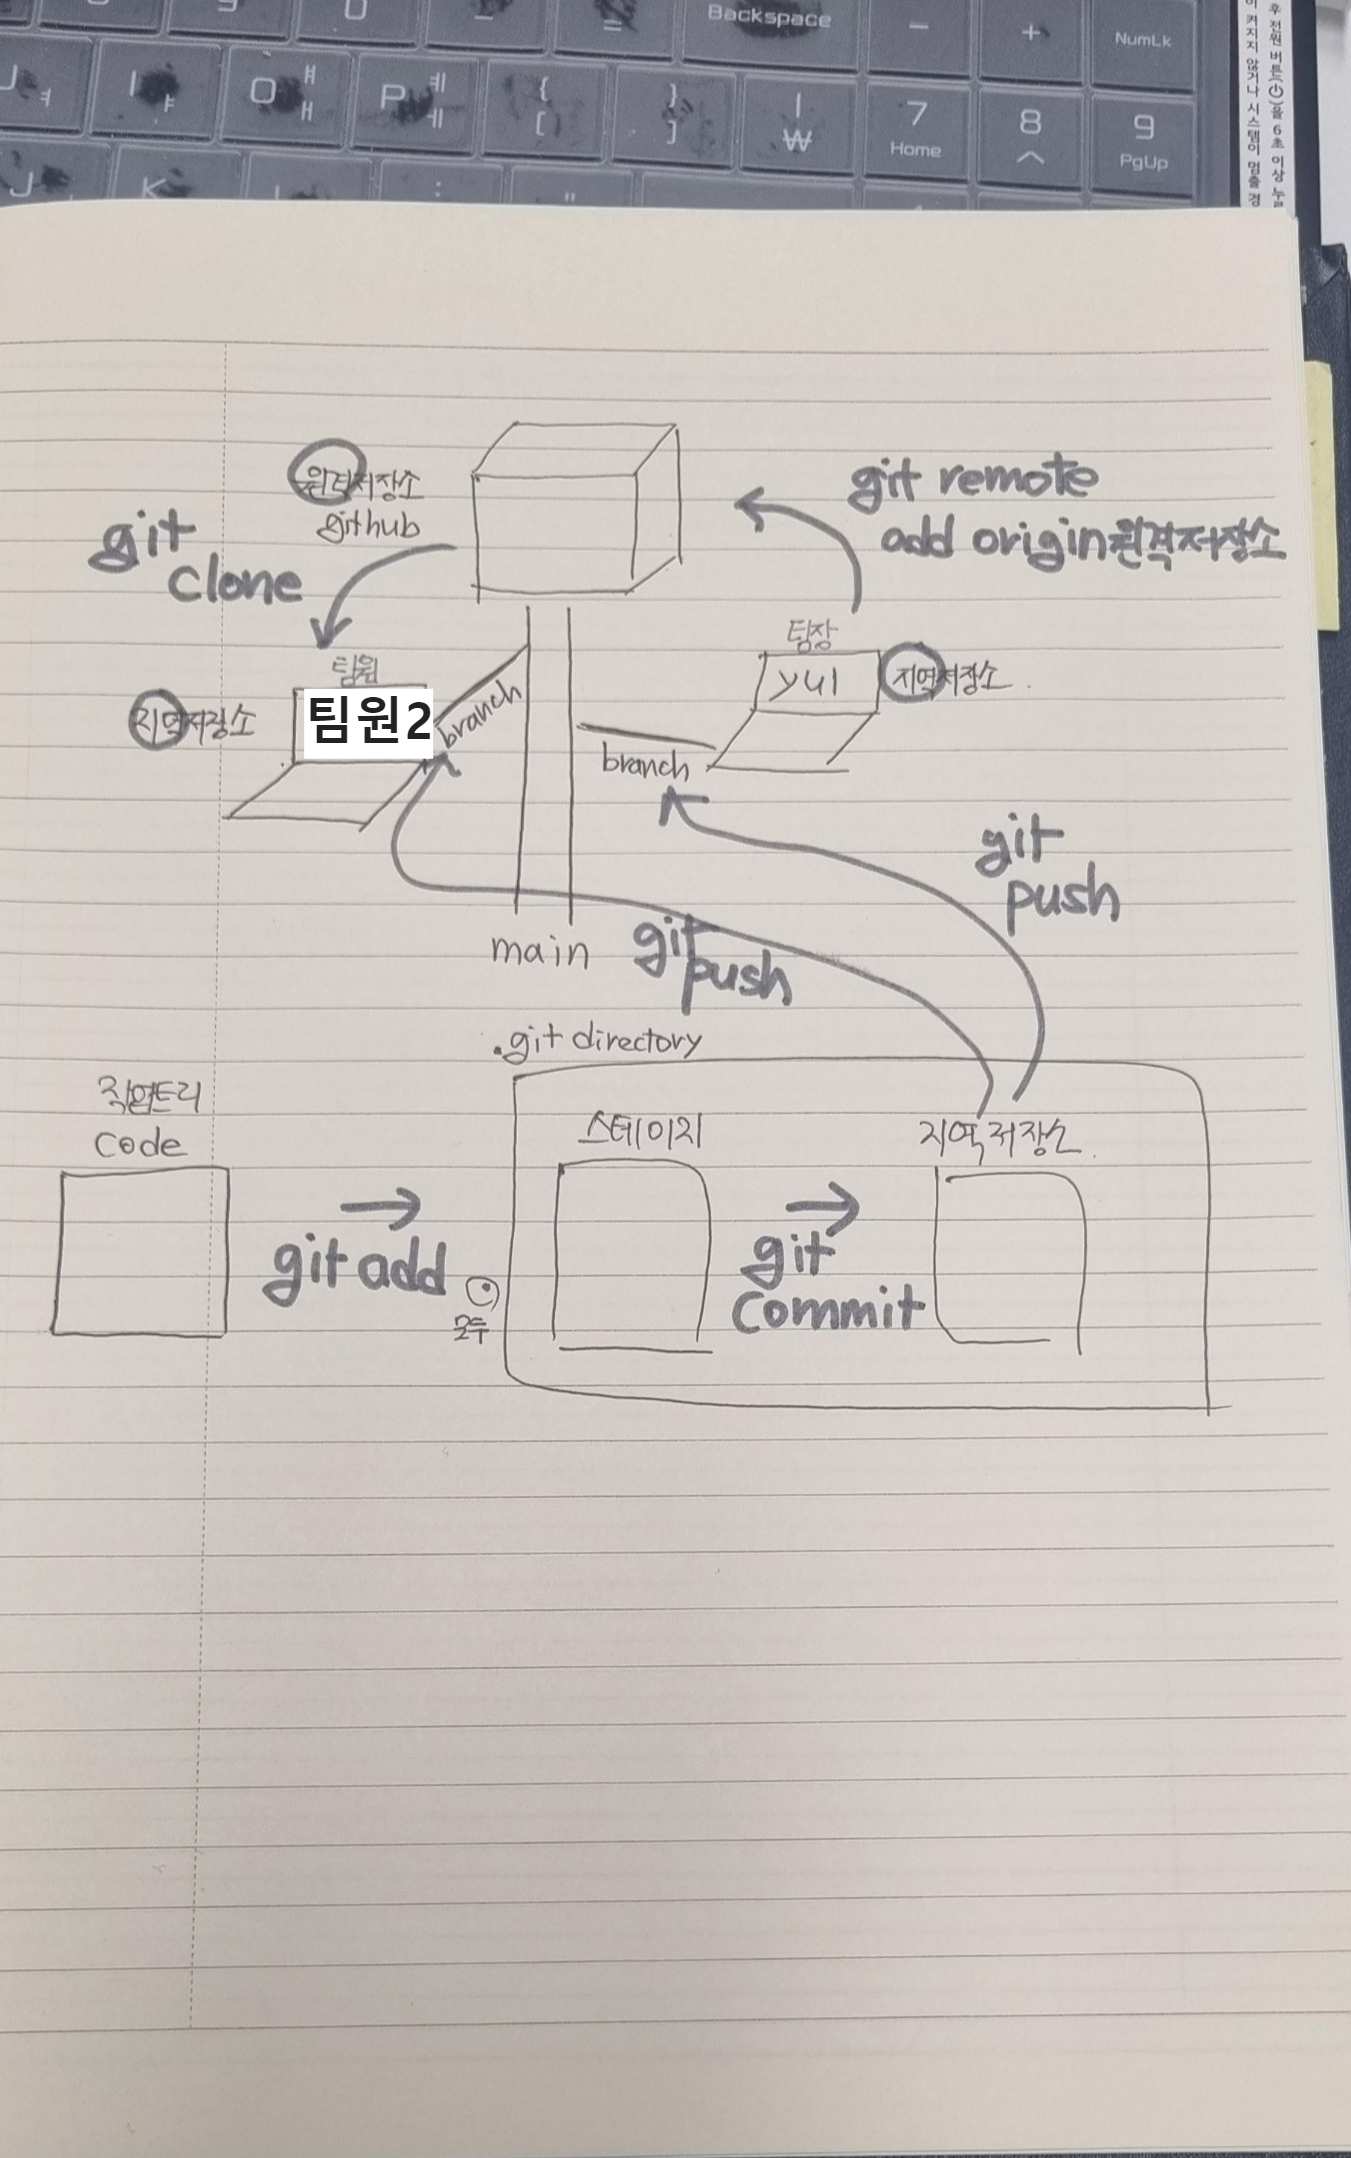 Backspace
-
+
NumLk
ㅕ
ㅑ
O ㅒ
ㅐ
P ㅖ
ㅔ
{
[
}
]
|
₩
7
Home
8
9
PgUp
J
K
:
"
후 전원 버튼(⏻)을 6초 이상 누르
이 켜지지 않거나 시스템이 멈출 경
원격저장소
github
git
clone
git remote
add origin 원격저장소
팀원
팀원2
지역저장소
branch
팀장
yul
지역저장소
branch
git
push
main
git
push
.git directory
작업트리
code
스테이지
지역저장소
git add .
모두
git
commit